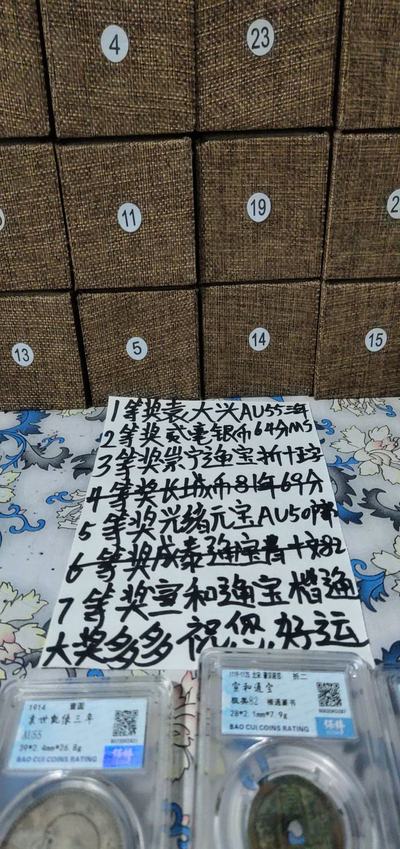 4
23
11
19
2
13
5
14
15
1等奖袁大兴AU55三年
2等奖贰毫银币64分MS
3等奖崇宁通宝折十
4等奖长城币81年69分
5等奖光绪元宝AU50
6等奖咸泰通宝背十文82
7等奖宣和通宝楷通
大奖多多祝您好运
1914 壹圆
袁世凯像三年
AU55
39*2.4mm*26.8g
BAO CUI COINS RATING
宣和通宝
极美82
28*2.1mm*7.9g
BAO CUI COINS RATING